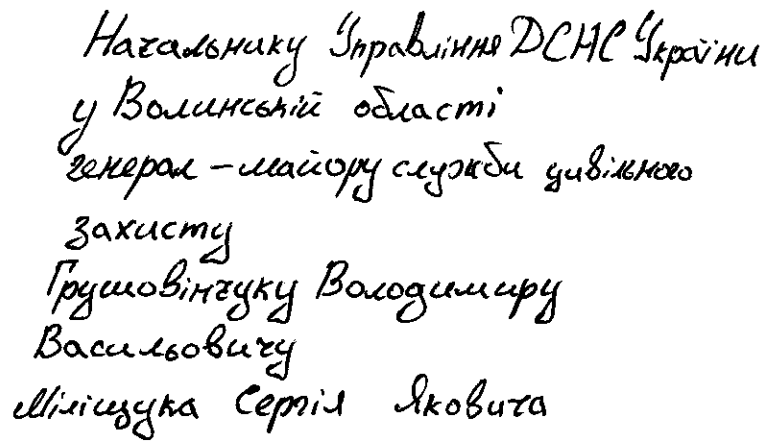 Начальнику Управління ДСНС України
у Волинській області
генерал-майору служби цивільного
захисту
Грушовінчуку Володимиру
Васильовичу
Міліщука Сергія Яковича